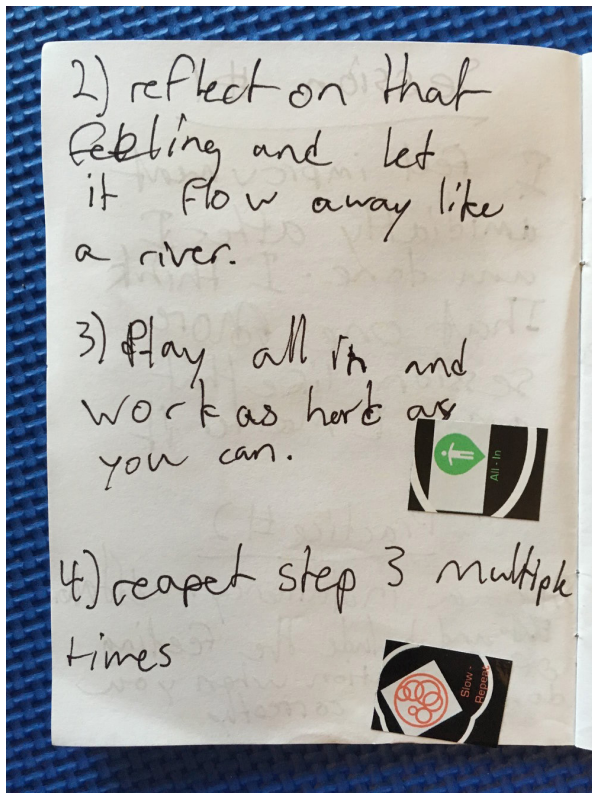 2) reflect on that
feeling and let
it flow away like
a river.
3) Play all in and
work as hard as
you can.
All - In
4) reapet step 3 multiple
times
Slow -
Repeat